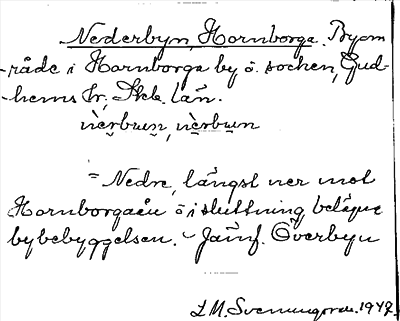 Nederbyn, Hornborga. Byom-
råde i Hornborga by o. socken, Gud-
hems hr, Skb. län.
nèrbun, nèrbun
= Nedre, längst ner mot
Hornborgaån ö i sluttning belägna
bybebyggelsen. ~ Jämf. Överbyn
L.M. Svenungsson. 1947.